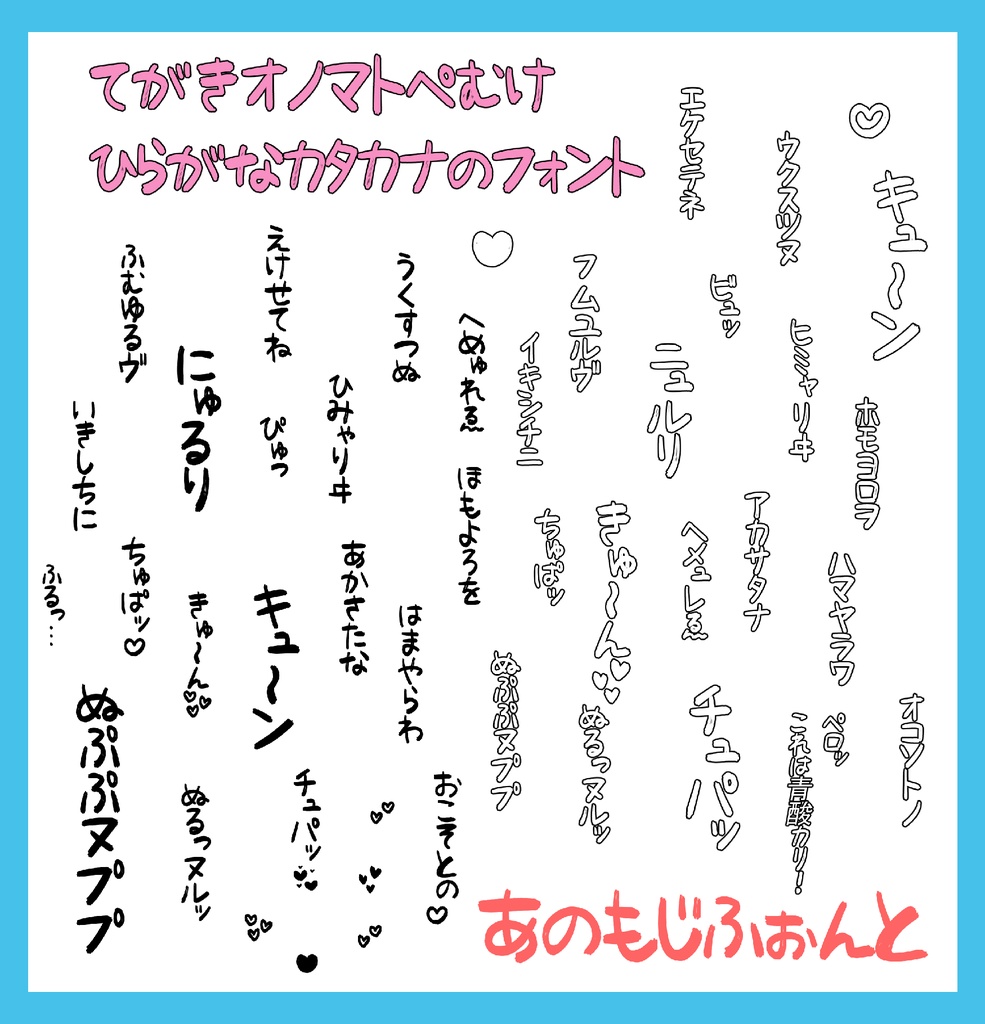 てがきオノマトペむけ
ひらがなカタカナのフォント
キュ〜ン
ウクスツヌ
エケセテネ
ホモヨロヲ
ヒミャリヰ
ビュッ
ニュルリ
フムユルヴ
イキシチニ
オコソトノ
ハマヤラワ
アカサタナ
ヘメュレゑ
きゅ〜ん♡♡♡
ちゅぱッ
ペロッ
これは青酸カリ!
チュパッ
ぬるっヌルッ
ぬぷぷヌプププ
へめゅれゑ
うくすつぬ
えけせてね
ふむゆるヴ
にゅるり
ひみゃりヰ
ぴゅっ
いきしちに
ほもよろを
はまやらわ
あかさたな
キュ〜ン
きゅ〜ん♡♡♡
ちゅぱッ♡
ふるっ…
おこそとの♡
チュパッ
ぬるっヌルッ
ぬぷぷヌプププ
あのもじふぉんと